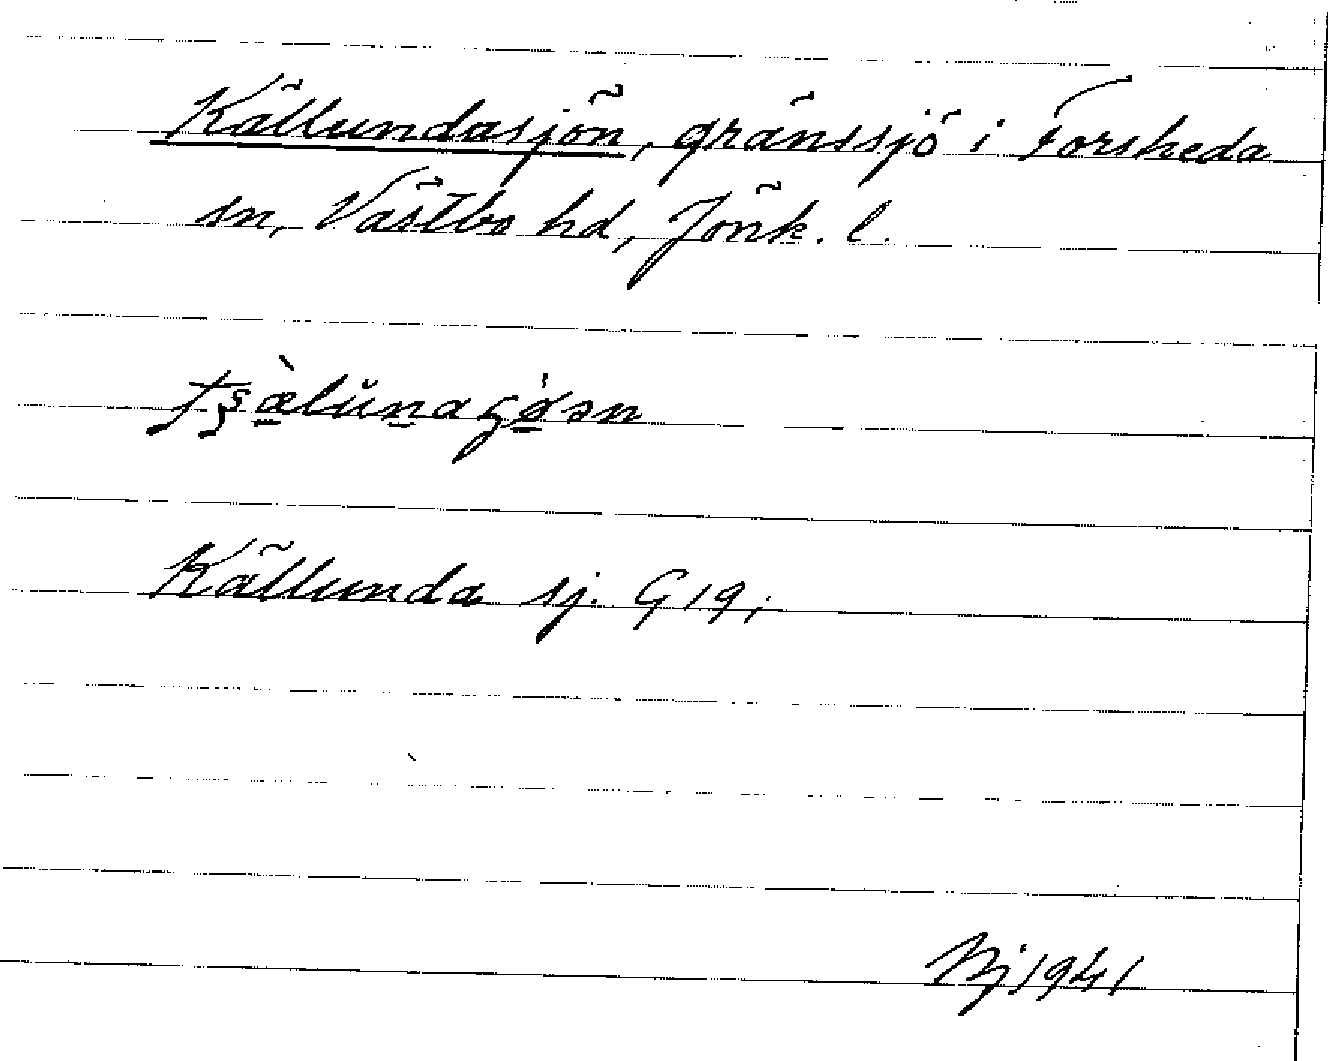 Källundasjön, gränssjö i Forsheda
sn, Västbo hd, Jönk. l.
Källunda sj. G 19;
Bj 1941